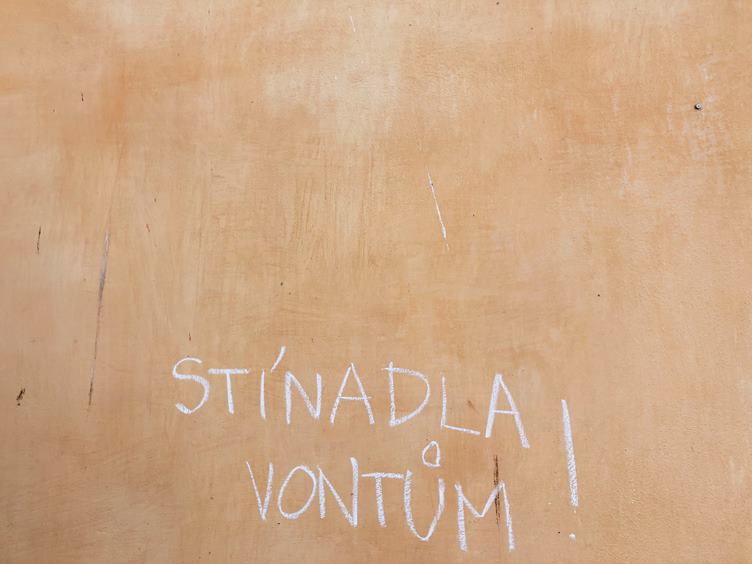 STÍNADLA
VONTŮM!